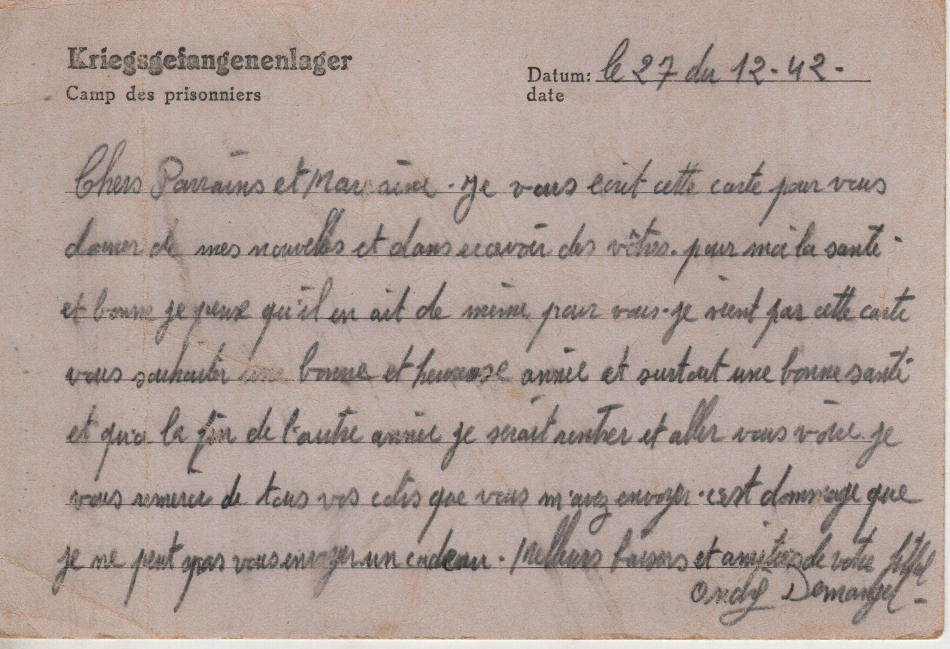 Kriegsgefangenenlager
Camp des prisonniers
Datum: le 27 du 12-42-
date
Chers Parrains et Marraine. Je vous ecrit cette carte pour vous
donner de mes nouvelles et dans recevoir des vôtres. pour moi la santé
et bonne je pense qu'il en ait de même pour vous. je vient par cette carte
vous souhaiter une bonne et heureuse année et surtout une bonne santé
et qu'a la fin de l'autre année je serait rentrer et aller vous voir. je
vous remercie de tous vos colis que vous m'avez envoyer. c'est dommage que
je ne peut pas vous envoyer un cadeau. Meilleurs baisers et amitiés de votre
André Demangel -